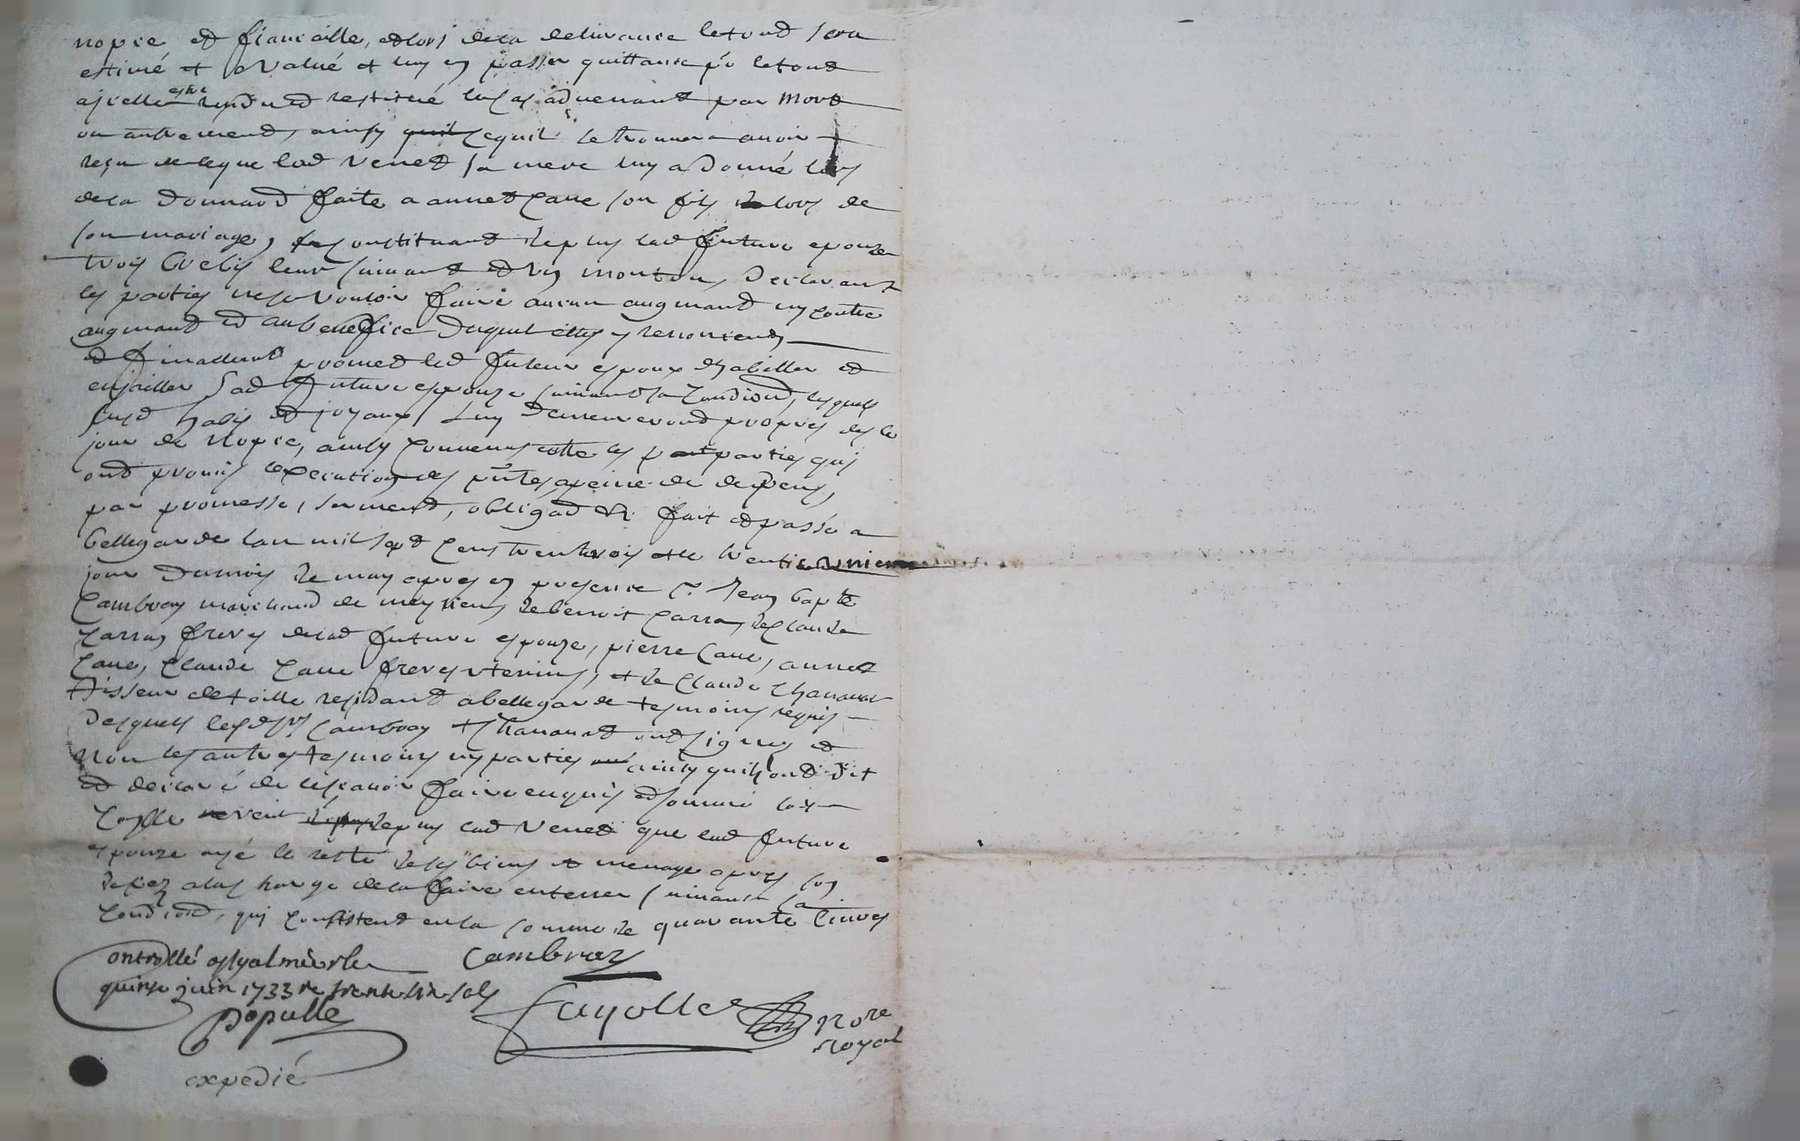 nopce et fiancaille, et lors de la delivrance le tout sera
estimé et evalué et luy en passer quittance pr le tout
a jcelle estre rendu et restitué le cas advenant par mort
ou autrement, ainsy cequil se trouvera avoir
reçu de ce que lad Venet sa mere luy a donné lors
de la donnaõn faite a annet Cave son fils lors de
son mariage, constituant de plus lad future epouze
trois brebis leur suivant et un mouton, Declarant
les parties ne se vouloir faire aucun augmant ny contre
augmant et au benefice duquel elles y renoncent
et finallem̃t promet led futeur espoux d'habiller et
enjoiller Sad future espouze suivant sa condiõn, lesquels
susd habis et joyaux luy demeureront propres des le
jour de nopce, ainsy convenu entre les parties qui
ont promis lexecution des p̃ntes a peine de depens,
par promesse, serment, obligaõn &c fait et passé a
bellegarde lan mil sept cens trente trois et le trentieunieme
jour du mois de may apres en presence sr Jean bapte
Cambray marchand de meyrieu, de benoit Carra, de Claude
Carra, freres de lad future espouze, pierre Cave, annet
Cave, Claude Cave freres uterins, et de Claude Chananat
tisseur de toille residant a bellegarde tesmoins requis
Desquels lesd srs Cambray et Chananat ont signes et
non les autres tesmoins ny parties ainsy quils ont dit
et declaré de ne scavoir faire enquis et sommé lois
Coplle de plus lad Venet que lad future
epouze ayé le reste de ses biens et menage apres son
decez a la charge de la faire enterrer suivant sa
Condiõn, qui consistent en la somme de quarante livres
Controllé a St galmier le
quinze juin 1733 re trente six sols
populle
expedié
Cambray
Fayolle
Nore
Royal